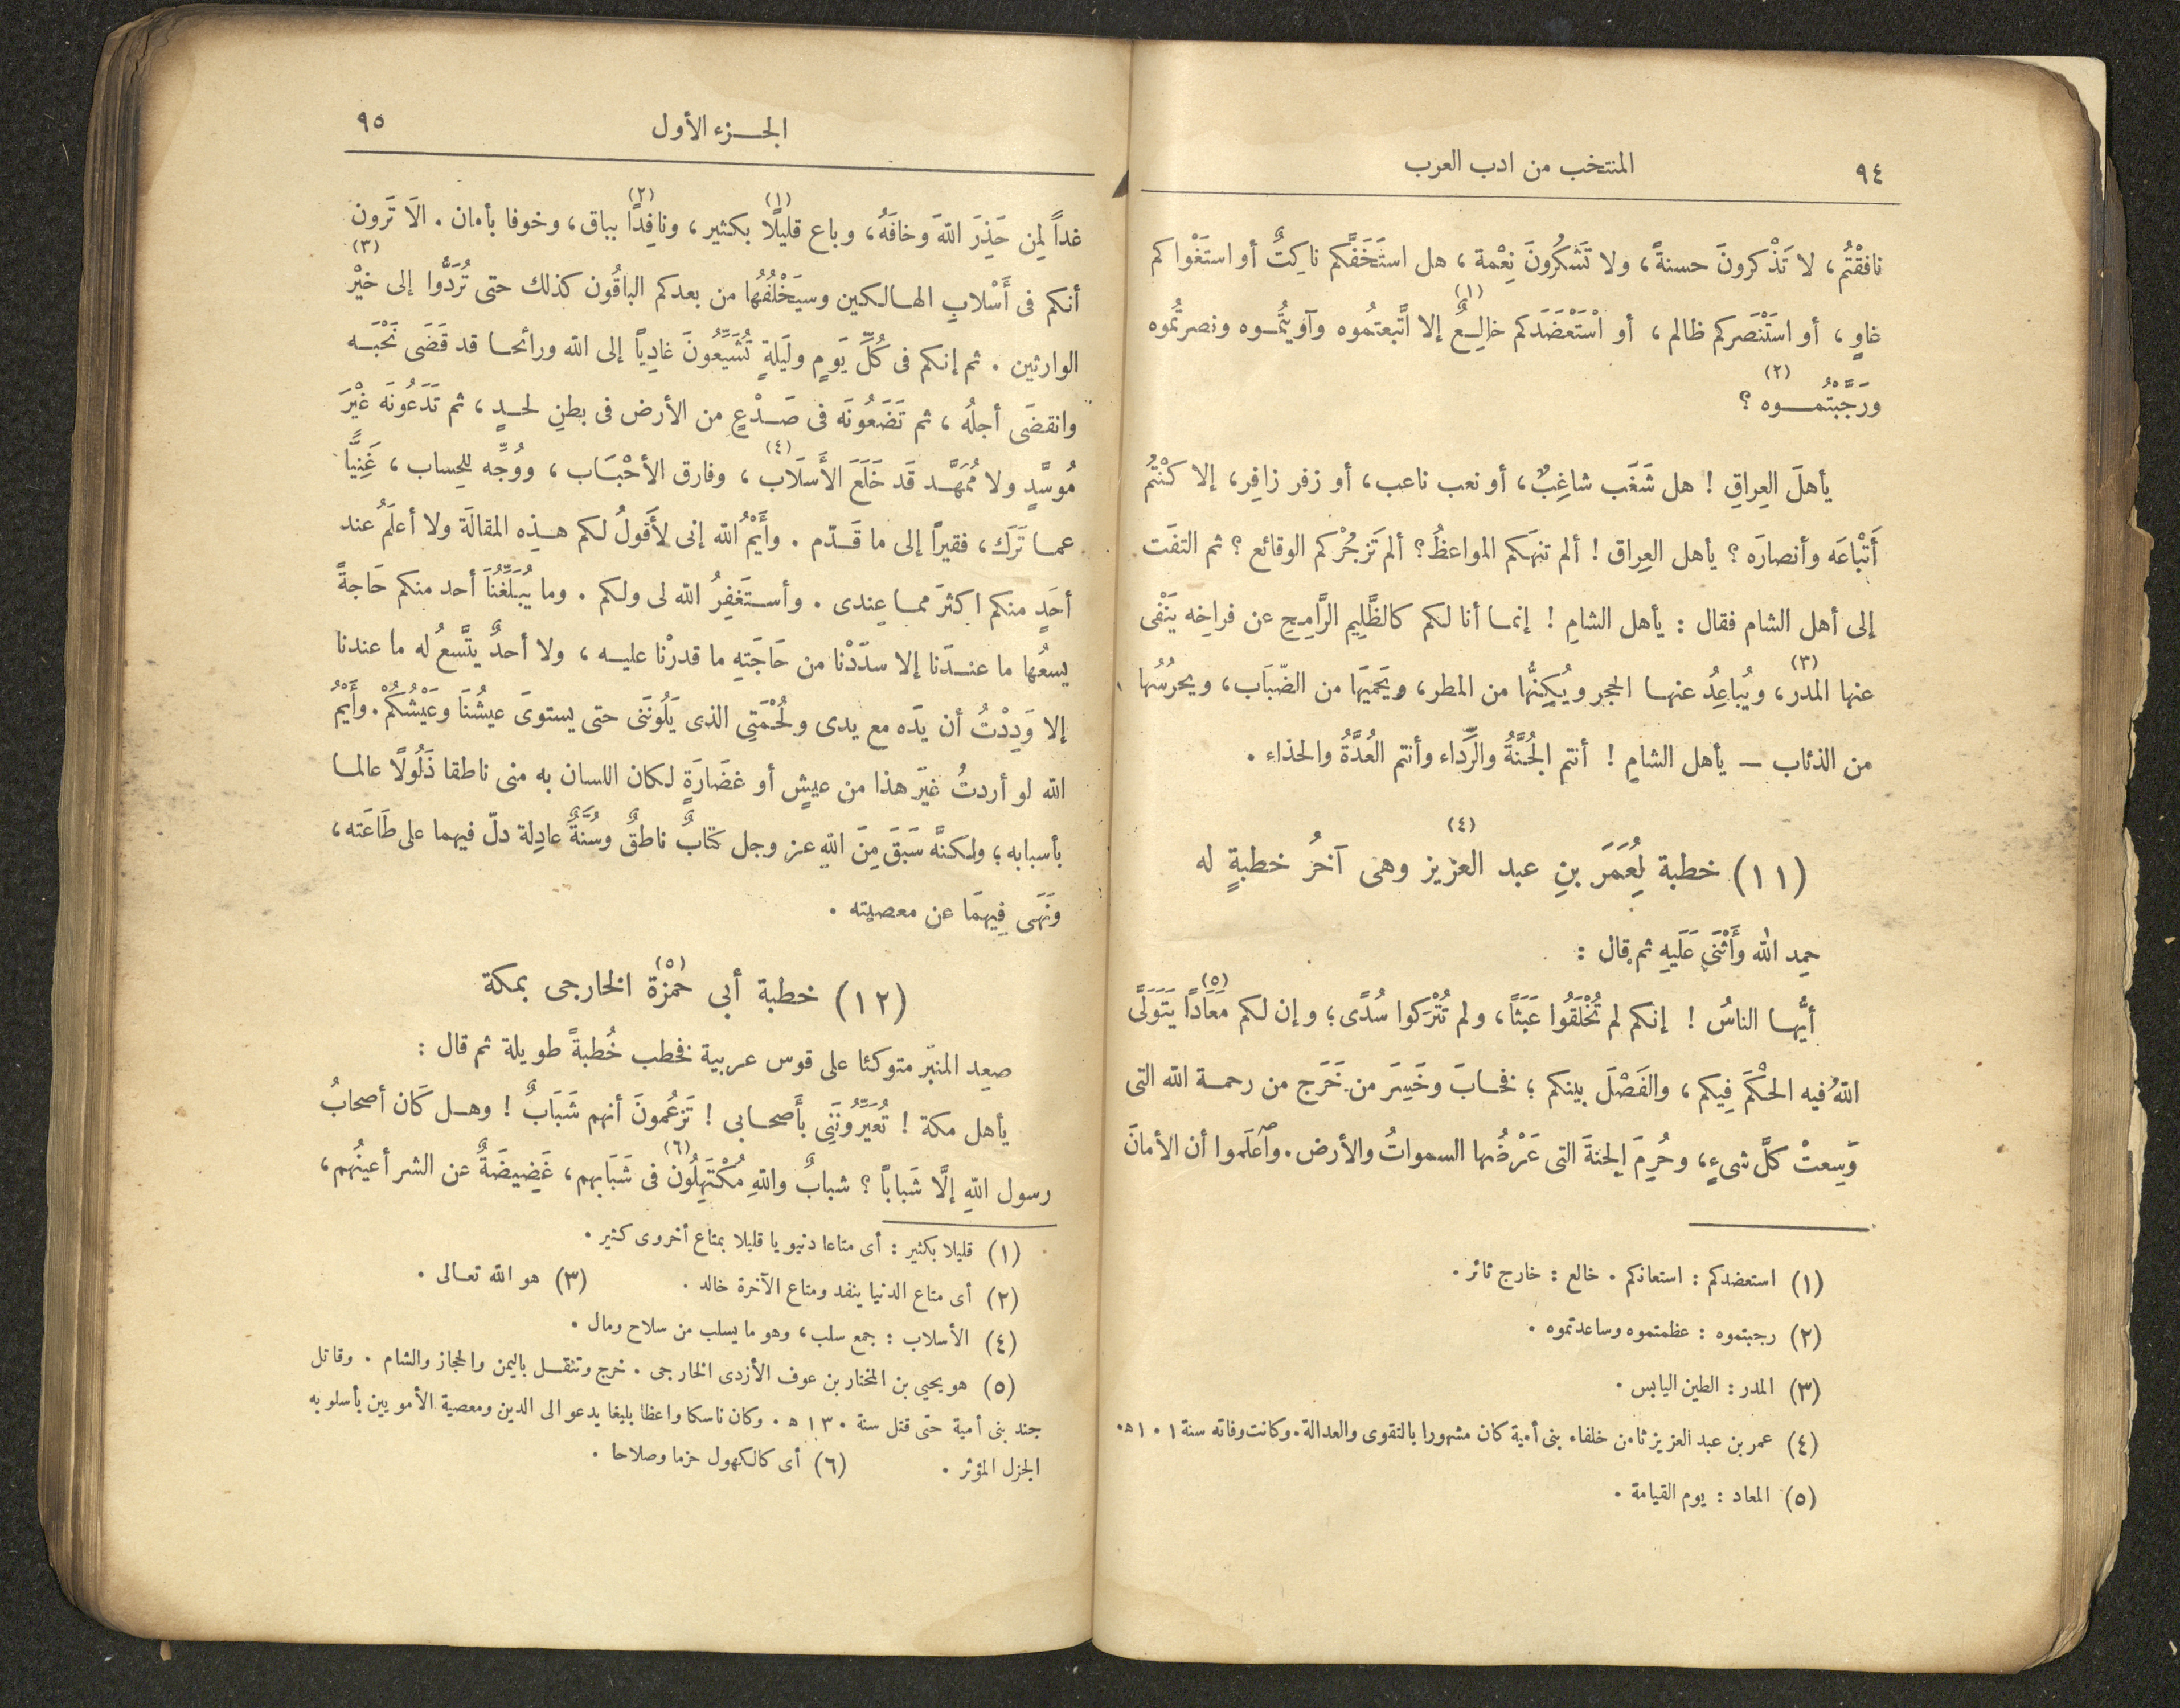 ٩٤ المنتخب من ادب العرب
نافقْتُم، لا تَذْكرونَ حسنةً، ولا تَشكُرُونَ نِعْمة، هل استَخَفَّكم ناكِثٌ أو استَغْواكم
غاوٍ، أو استَنْصَركم ظالم، أو اْستَعْضَدَكم خالِعٌ (١) إلا اتَّبعتمُوه وآويْتُمـوه ونصرتُموه
ورَجَّبْتُمـوه (٢) ؟
يأهلَ العِراقِ ! هل شَغَب شاغِبٌ، أو نعب ناعب، أو زفر زافِر، إلا كنْتُم
أَتْباعَه وأنصارَه ؟ يأهل العِراق ! ألم تنهَكم المواعظُ ؟ ألم تَزجُرْكم الوقائع ؟ ثم التفَت
إلى أهل الشام فقال : يأهل الشامِ ! إنمـا أنا لكم كالظَّلِيم الرَّامِحِ عن فراخِه يَنْفى
عنها المدَر (٣)، ويُباعِدُ عنهـا الحجر ويُكِنُّها من المطر، ويَحَميَها من الضّبَاب، ويحرُسُها
من الذئاب — يأهل الشامِ ! أنتم الجُنَّةُ والرِّداء وأنتم العُدَّةُ والحذاء .
(١١) خطبة لِعُمَرَ بنِ عبد العزيز (٤) وهى آخرُ خطبةٍ له
حمِد الله وأَثْنَى عَلَيهِ ثم قال :
أيُّهـا الناسُ ! إنكم لم تُخْلَقُوا عَبَثاً، ولم تُتْرَكوا سُدًى؛ وإن لكم مَعَاداً (٥) يَتَوَلَّى
اللهُ فيه الحكْمَ فِيكم، والفَصْلَ بينكم؛ فخـابَ وخَسِرَ من خَرَج من رحمـة الله التى
وَسِعتْ كلَّ شىءٍ، وحُرِمَ الجنةَ التى عَرْضُها السمواتُ والأرض. واَعلَموا أن الأمانَ
(١) استعضدكم : استعانكم . خالع : خارج ثائر .
(٢) رجبتموه : عظمتموه وساعدتموه .
(٣) المدر : الطين اليابس .
(٤) عمر بن عبد العزيز ثامن خلفاء بنى أمية كان مشهورا بالتقوى والعدالة. وكانت وفاته سنة ١٠١ ه.
(٥) المعاد : يوم القيامة .
الجـزء الأول ٩٥
غداً لِمن حَذِرَ اللهَ وخافَهُ، وباع قليلًا (١) بكثير، ونافِدًا (٢) بباق، وخوفا بأمان . الَا تَرون
أنكم فى أَسْلابِ الهـالكين وسيَخْلُفُها من بعدكم الباقُون كذلك حتى تُرَدُّوا إلى خيْر (٣)
الوارثين . ثم إنكم فى كُلِّ يَومٍ ولَيَلةٍ تُشَيِّعُونَ غادِياً إلى الله ورائحـا قد قَضَى نَحْبَـه
وانقضَى أجلُه، ثم تَضَعُونَه فى صَـدْعٍ من الأرض فى بطنِ لحـدٍ، ثم تَدَعُونَه غيْرَ
مُوسَّدٍ ولا مُمَهَّـد قَد خَلَعَ الأَسلَاب (٤)، وفارق الأحْبَـاب، ووُجِّه للحِساب، غَنِيًّا
عمـا تَرَك، فقيراً إلى ما قَـدّم . وأَيْمُ الله إنى لأَقولُ لكم هـذِه المقالَة ولا أعلَمُ عند
أحَدٍ منكم اكثرَ ممـا عِندى . وأسـتَغفِرُ الله لى ولكم . وما يُبَلِّغُنَا أحد منكم حَاجةً
يسعُها ما عنـدَنا إلا سدّدْنا من حَاجَتِهِ ما قدرْنا عليـه، ولا أحدٌ يتَّسعُ له ما عندنا
إلا وَدِدْتُ أن يدَه مع يدى ولُحْمَتِى الذى يَلُونَنى حتى يستوىَ عيشُنَا وَعَيْشُكُمْ . وأَيْمُ
الله لو أردتُ غيَر هذا من عيشٍ أو غضَارَةٍ لكان اللسان به منى ناطقا ذَلُولًا عالمـا
بأسبابه؛ ولكنهَّ سَبَقَ مِنَ اللهِ عز وجل كتابٌ ناطقٌ وسُنَّةٌ عادِلة دلّ فيهما على طَاعَته،
ونَهَى فِيهمَا عن معصيته .
(١٢) خطبة أبى حمزة (٥) الخارجى بمكة
صعِد المنبَر متوكئا على قوس عربية فخطب خُطبةً طويلة ثم قال :
يأهل مكة ! تُعَيِّرُونَنِى بأَصحـابى ! تَزعُمونَ أنهم شَبَابٌ ! وهـل كَان أصحابُ
رسول اللهِ إلَّا شَباباً ؟ شبابٌ واللهِ مُكْتَهِلُون (٦) فى شَبَابهم، غَضِيضَةٌ عن الشر أعينُهم،
(١) قليلا بكثير : أى متاعا دنيويا قليلا بمتاع أخروى كثير .
(٢) أى متاع الدنيا ينفد ومتاع الآخرة خالد . (٣) هو الله تعـالى .
(٤) الأسلاب : جمع سلب، وهو ما يسلب من سلاح ومال .
(٥) هو يحيي بن المختار بن عوف الأزدى الخارجى . خرج وتنقـل باليمن والحجاز والشام . وقاتل
جند بنى أمية حتى قتل سنة ١٣٠ ه . وكان ناسكا واعظا بليغا يدعو الى الدين ومعصية الأمويين بأسلوبه
الجزل المؤثر . (٦) أى كالكهول حزما وصلاحا .